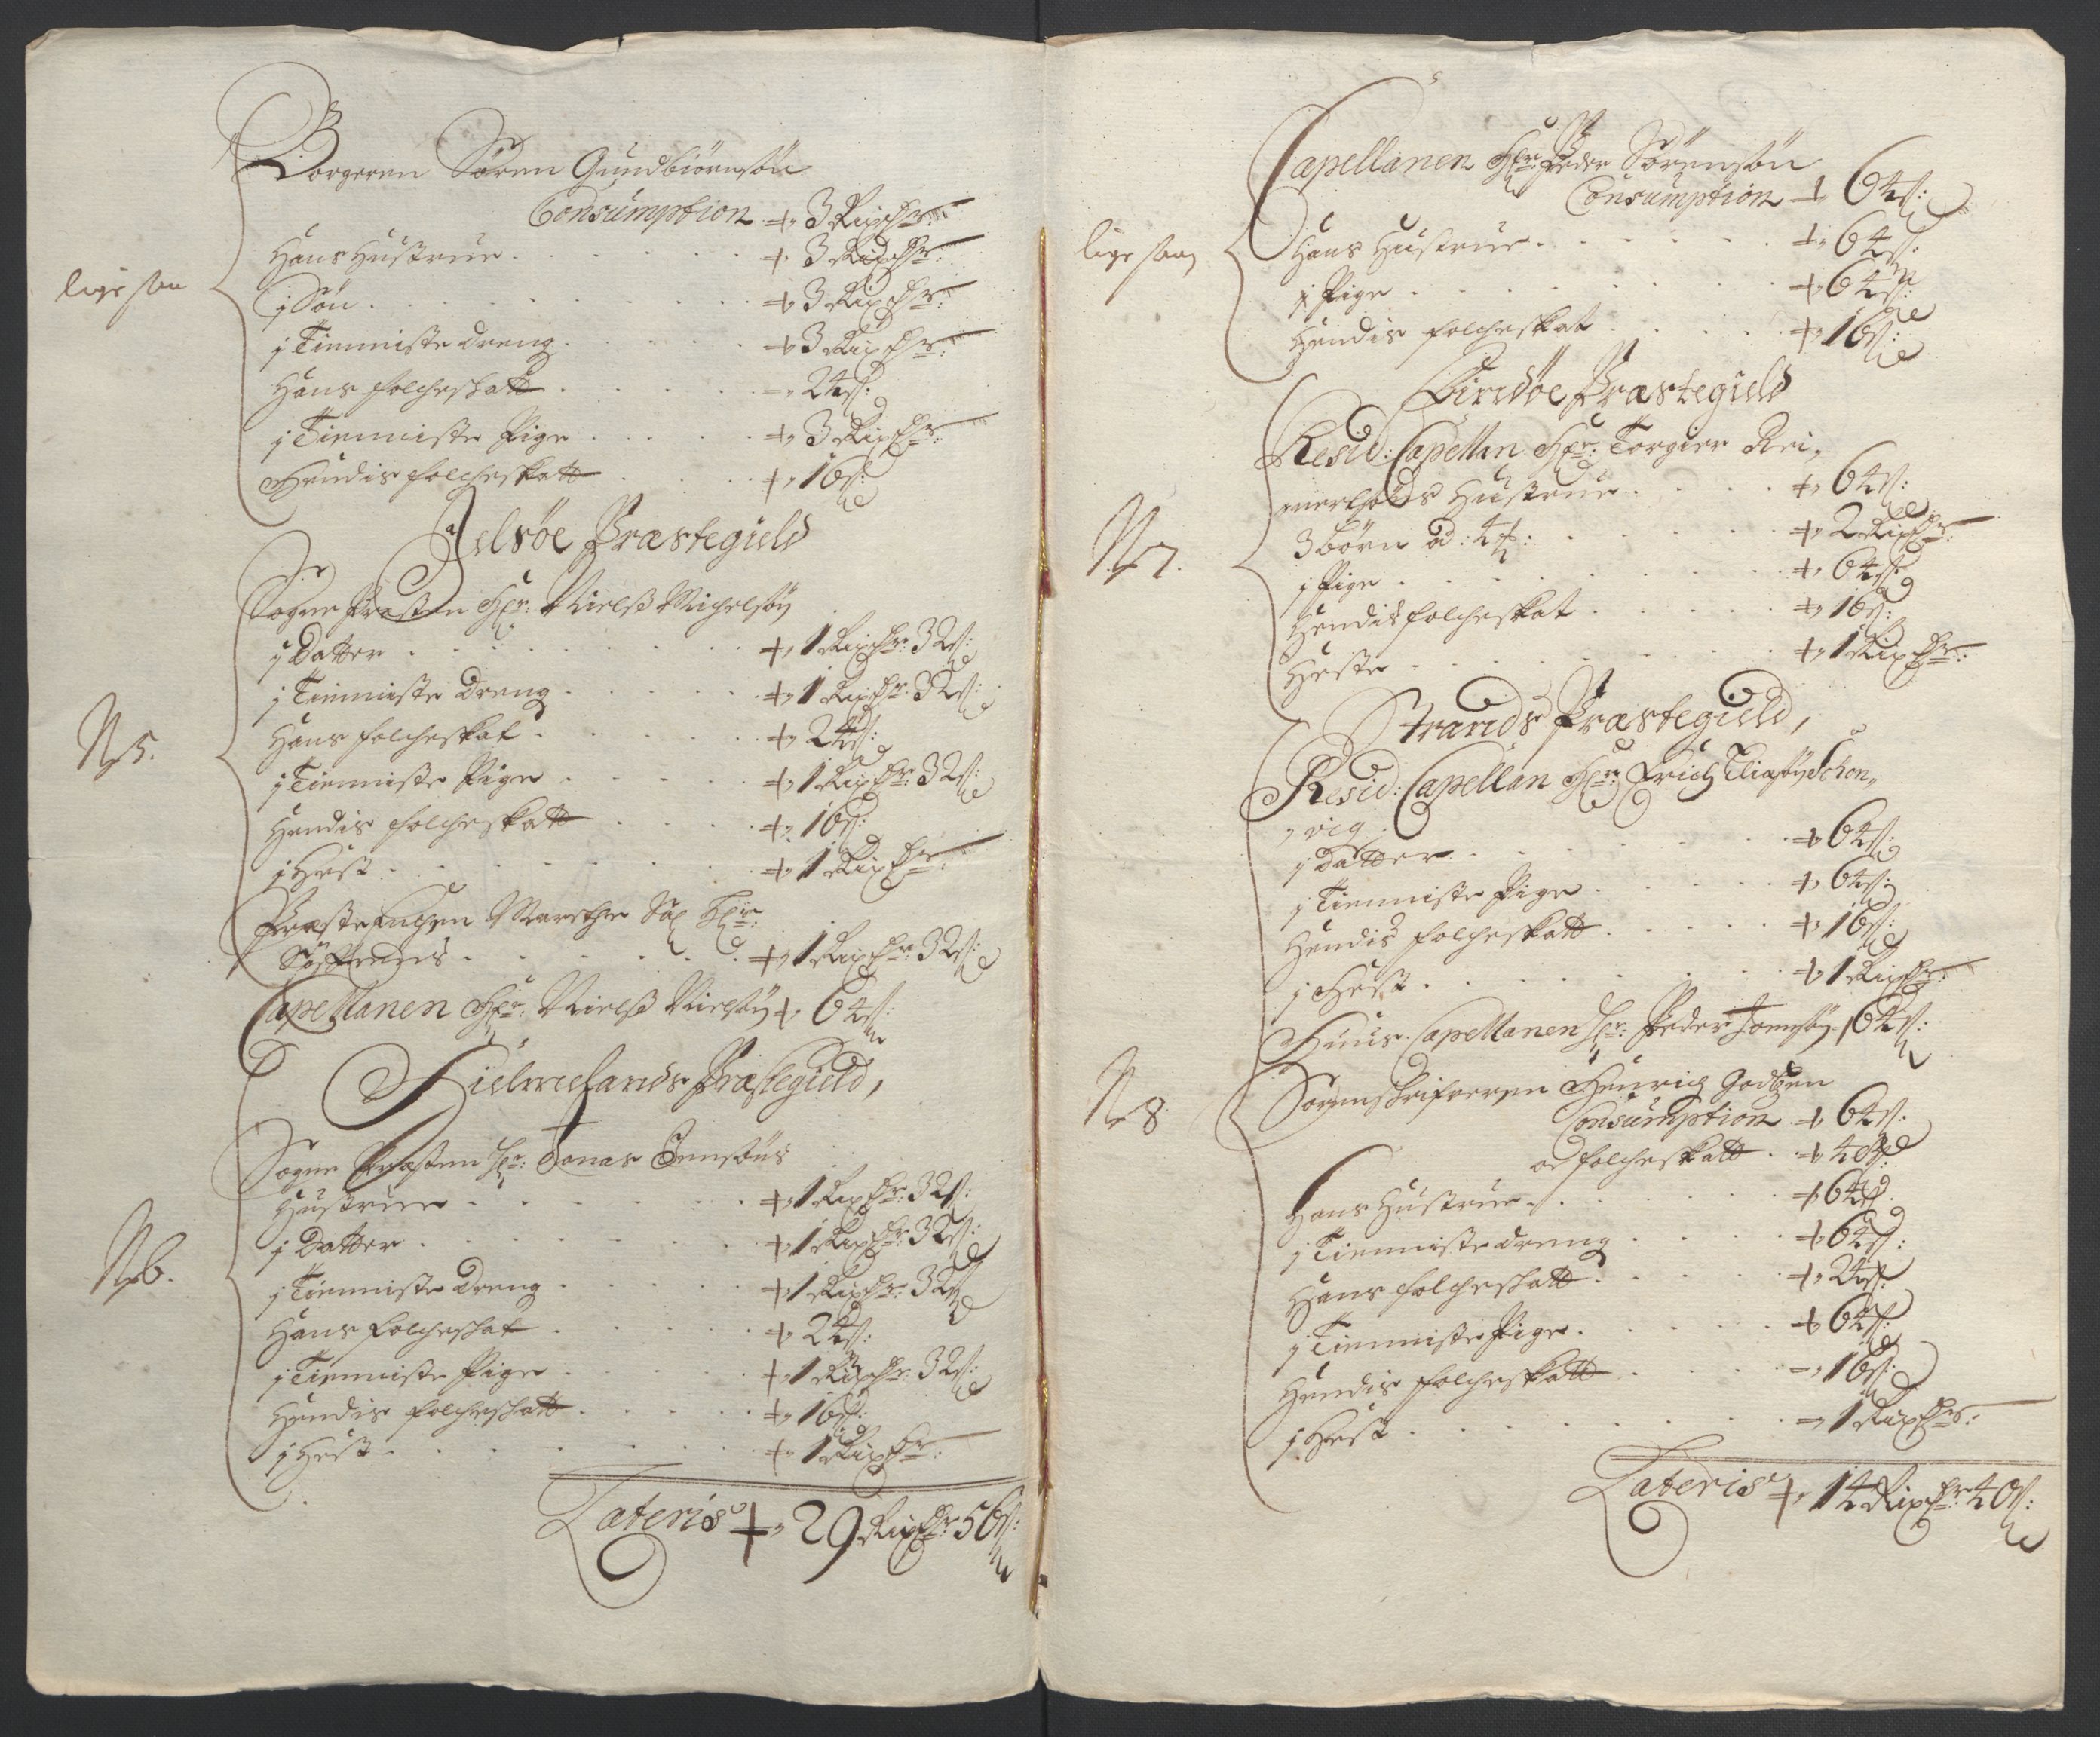 Borgeren Søren Gundbiörnsön
Consumption +„ 3 Rixdlr:
lige saa
Hans Hustrue . . . +„ 3 Rixdlr:
j Søn . . . +„ 3 Rixdlr:
j Tienniste dreng . . . +„ 3 Rixdlr:
Hans folcheskatt . . . -„ 24 ß:
j Tienniste Pige . . . +„ 3 Rixdlr:
Hendis folcheskatt . . . +„ 16 ß:
Jelsöe Præstegield
Sogne Præsten Hr: Nielß Michelsøn
N 5.
j Datter . . . +„ 1 Rixdlr: 32 ß:
j Tienniste dreng . . . +„ 1 Rixdlr: 32 ß:
Hans folcheskat . . . +„ 24 ß:
j Tienniste Pige . . . +„ 1 Rixdlr: 32 ß:
Hendis folcheskatt . . . +„ 16 ß:
j Hest . . . +„ 1 Rixdlr:
Præste Enchen Marethe Sal Hr:
. . . +„ 1 Rixdlr: 32 ß:
Capellanen Hr: Nielß Nielsøn +„ 64 ß:
Hielmelands Præstegield,
Sogne Præsten Hr: Jonas Jensøns
N 6.
Hustrue . . . +„ 1 Rixdlr: 32 ß:
j Datter . . . +„ 1 Rixdlr: 32 ß:
j Tienniste dreng . . . +„ 1 Rixdlr: 32 ß
Hans folcheskat . . . +„ 24 ß:
j Tienniste Pige . . . +„ 1 Rixdlr: 32 ß:
Hendis folcheskatt . . . +„ 16 ß:
j Hest . . . +„ 1 Rixdlr:
Lateris +„ 29 Rixdlr: 56 ß:
Capellanen Hr: Peder Sörensön
Consumption +„ 64 ß:
lige saa
Hans Hustrue . . . +„ 64 ß:
j Pige . . . +„ 64 ß:
Hendis folcheskat . . . +„ 16 ß:
Findöe Præstegield
Resid: Capellan Hr: Torgier Rei„
N 7.
Hustrue . . . +„ 64 ß:
3 börn od: 4 . . . +„ 2 Rixdlr:
j Pige . . . +„ 64 ß:
Hendis folcheskat . . . +„ 16 ß:
Heste . . . +„ 1 Rixdlr:
Strands Præstegield,
Resid: Capellan Hr: Erich Eliasøn Schon„
„vig
j Datter . . . +„ 64 ß:
j Tienniste Pige . . . +„ 64 ß:
Hendis folcheskatt . . . +„ 16 ß:
j Hest . . . +„ 1 Rixdlr:
Huus Capellanen Hr: Peder 64 ß:
N 8
Sorenschrifveren Henrich Godtzen
Consumption +„ 64 ß:
folcheskatt . +„ 40 ß:
Hans Hustrue . . . +„ 64 ß:
j Tienniste dreng . . . +„ 64 ß:
Hans folcheskatt . . . +„ 24 ß:
j Tienniste Pige . . . +„ 64 ß:
Hendis folcheskatt . . . -„ 16 ß:
j Hest . . . -„ 1 Rixdlr:
Lateris +„ 14 Rixdlr: 40 ß: